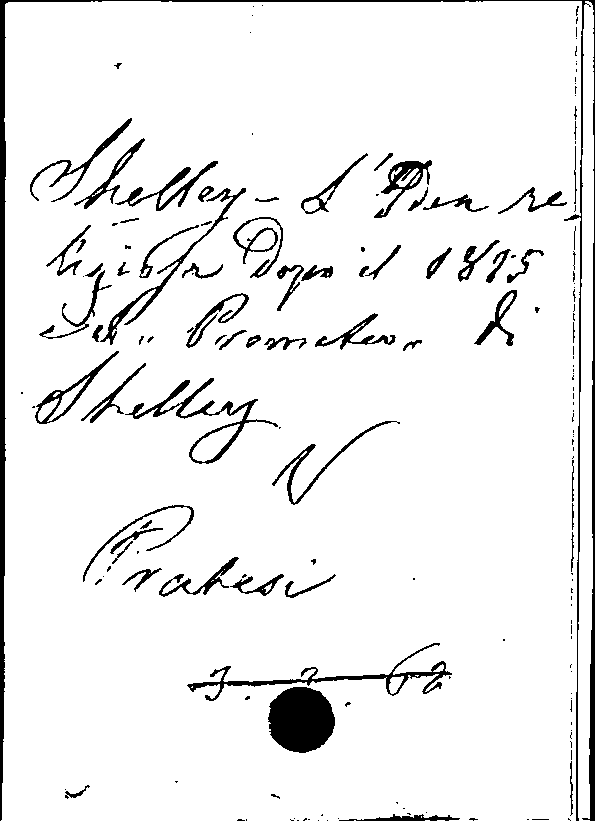 Shelley - L'Idea re-
ligiosa Dopo il 1815
ed il "Prometeo" di
Shelley
V
Pratesi
3. 2. 62